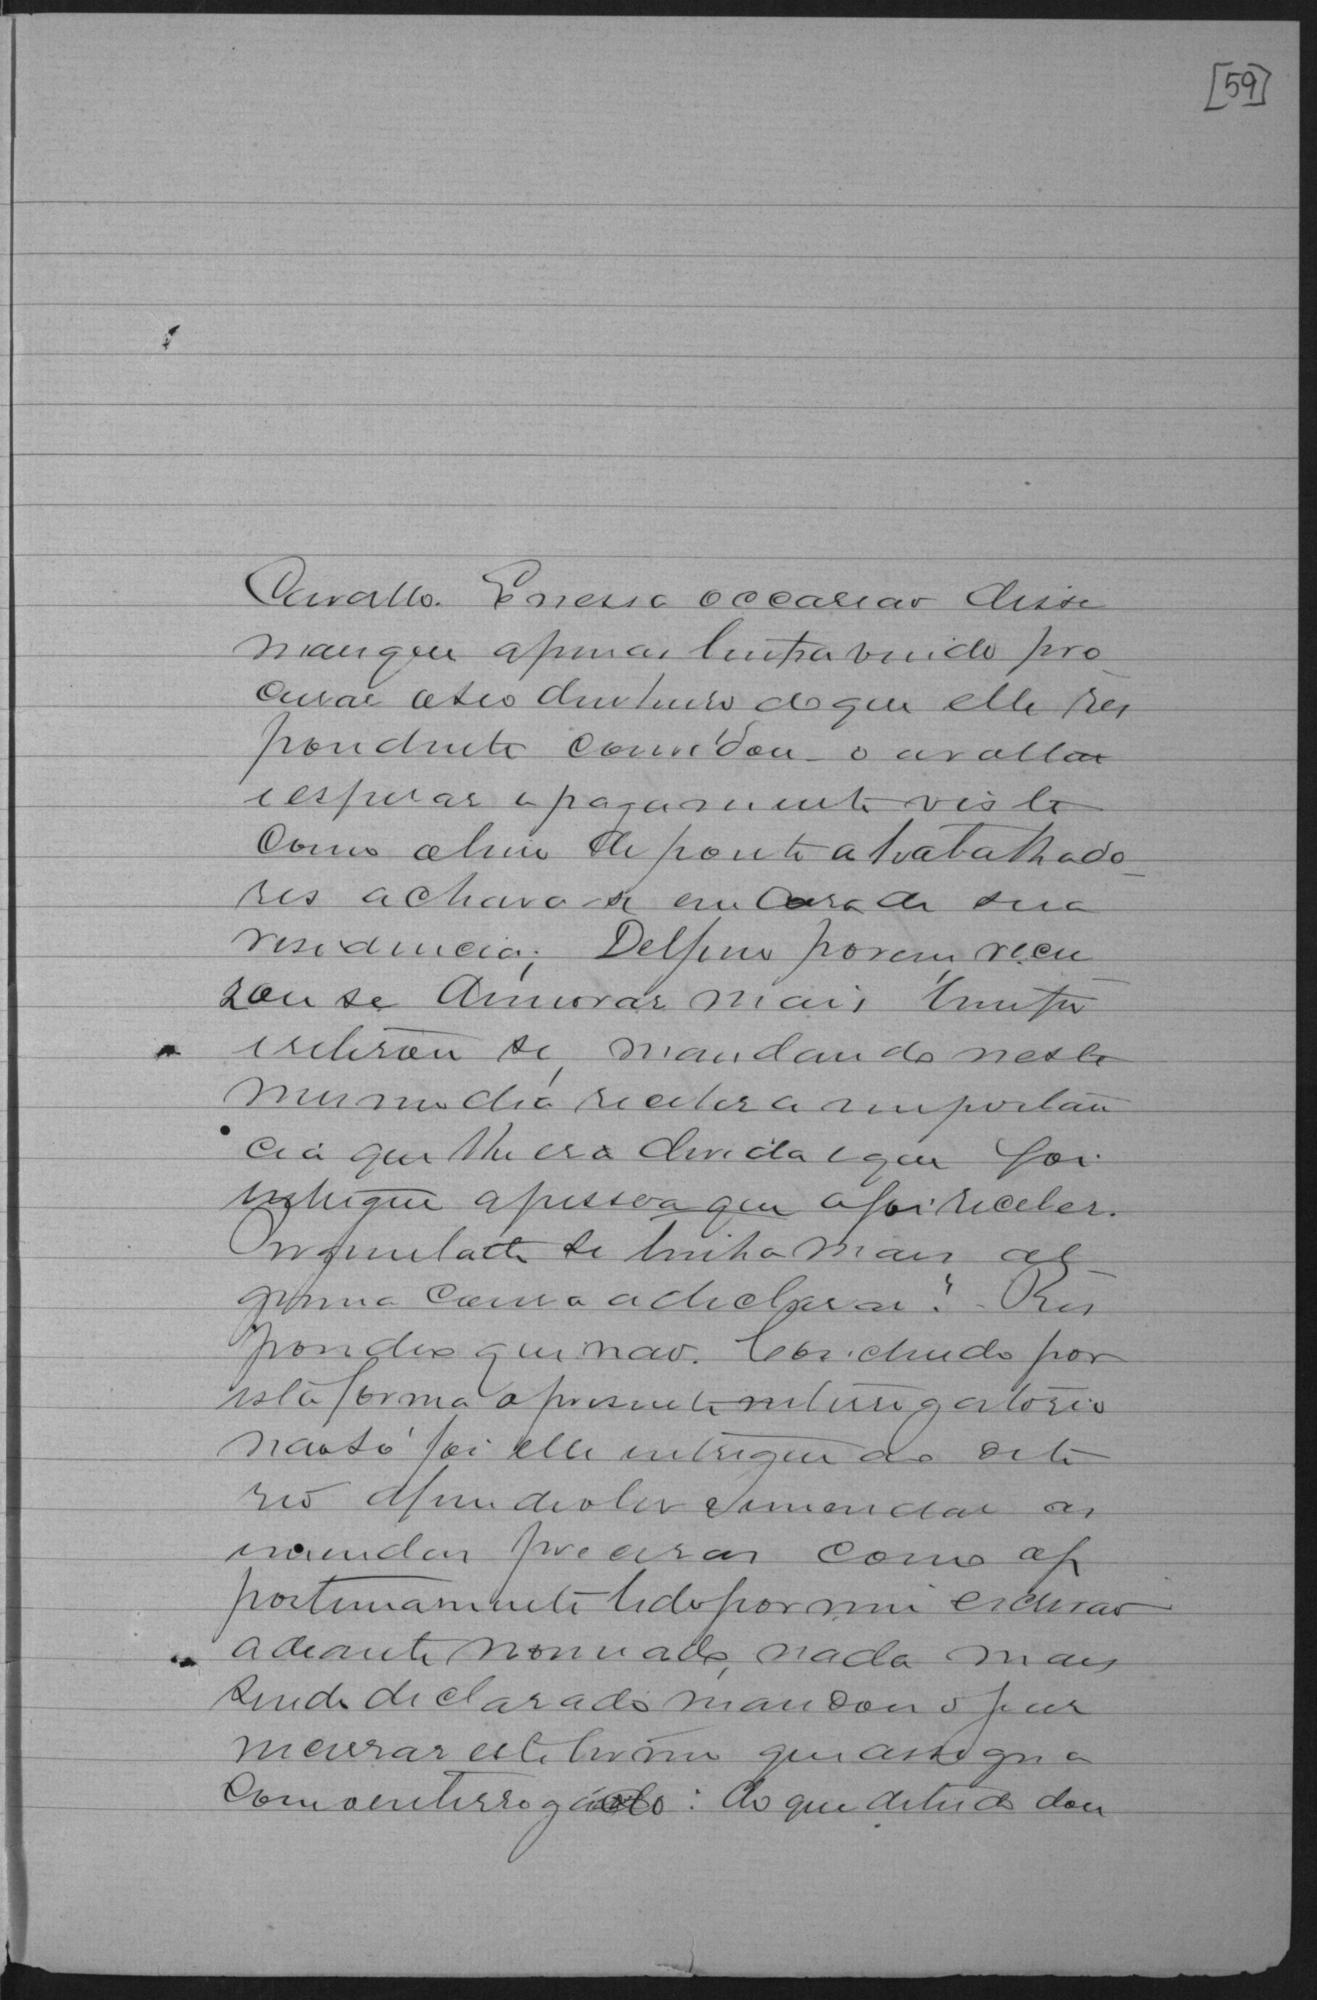 [59]
Cavallo. E nessa occasião disse
mais que apenas tinha vindo pro
curar o seo dinheiro do que elle res
pondente convidou-o a vollar
e esperar o pagamento visto
como alem de ponto a trabalhado
res achava-se em casa de sua
residencia; Delfino porem, recu
zou se demorar mais tempo
e retirou se, mandando neste
mesmo dia receber a importan
cia que lhe era devida e que foi
entregue a pessoa que a foi receber.
Perguntado se tinha mais al
guma cousa a declarar? Res
pondeo que não. Concluido por
esta forma o presente interrogatorio
não só foi elle entregue ao dito
reo afim de o ler e emendar as
emendas precisas como op
portunamente lido por mim escrivão
adeante nomeado, nada mais
sendo declarado mandou o juiz
encerrar este termo que assigna
com o enterrogado: do que de tudo dou